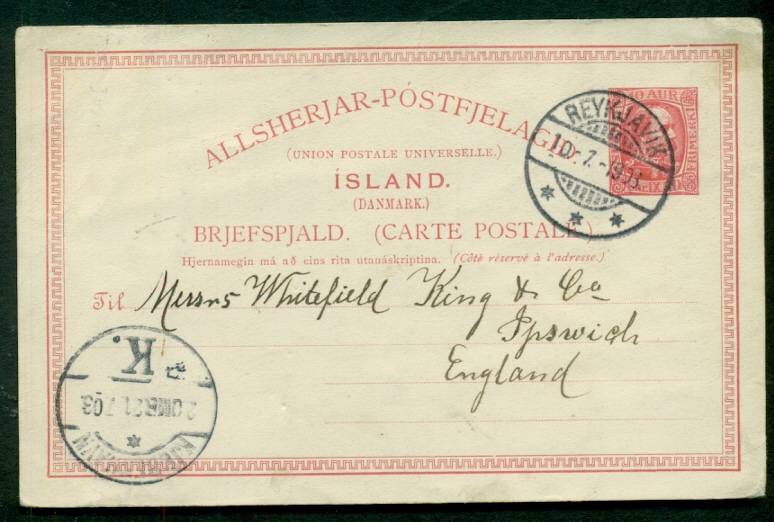 ALLSHERJAR-PÓSTFJELAGIÐ.
(UNION POSTALE UNIVERSELLE.)
ÍSLAND.
(DANMARK.)
BRJEFSPJALD. (CARTE POSTALE.)
Hjernamegin má að eins rita utanáskriptina. (Côté réservé à l'adresse.)
10 AUR
FRIMERKI
REYKJAVIK
10. 7.
Til Messrs Whitefield King & Co
Ipswich
England
K.
21.7.03